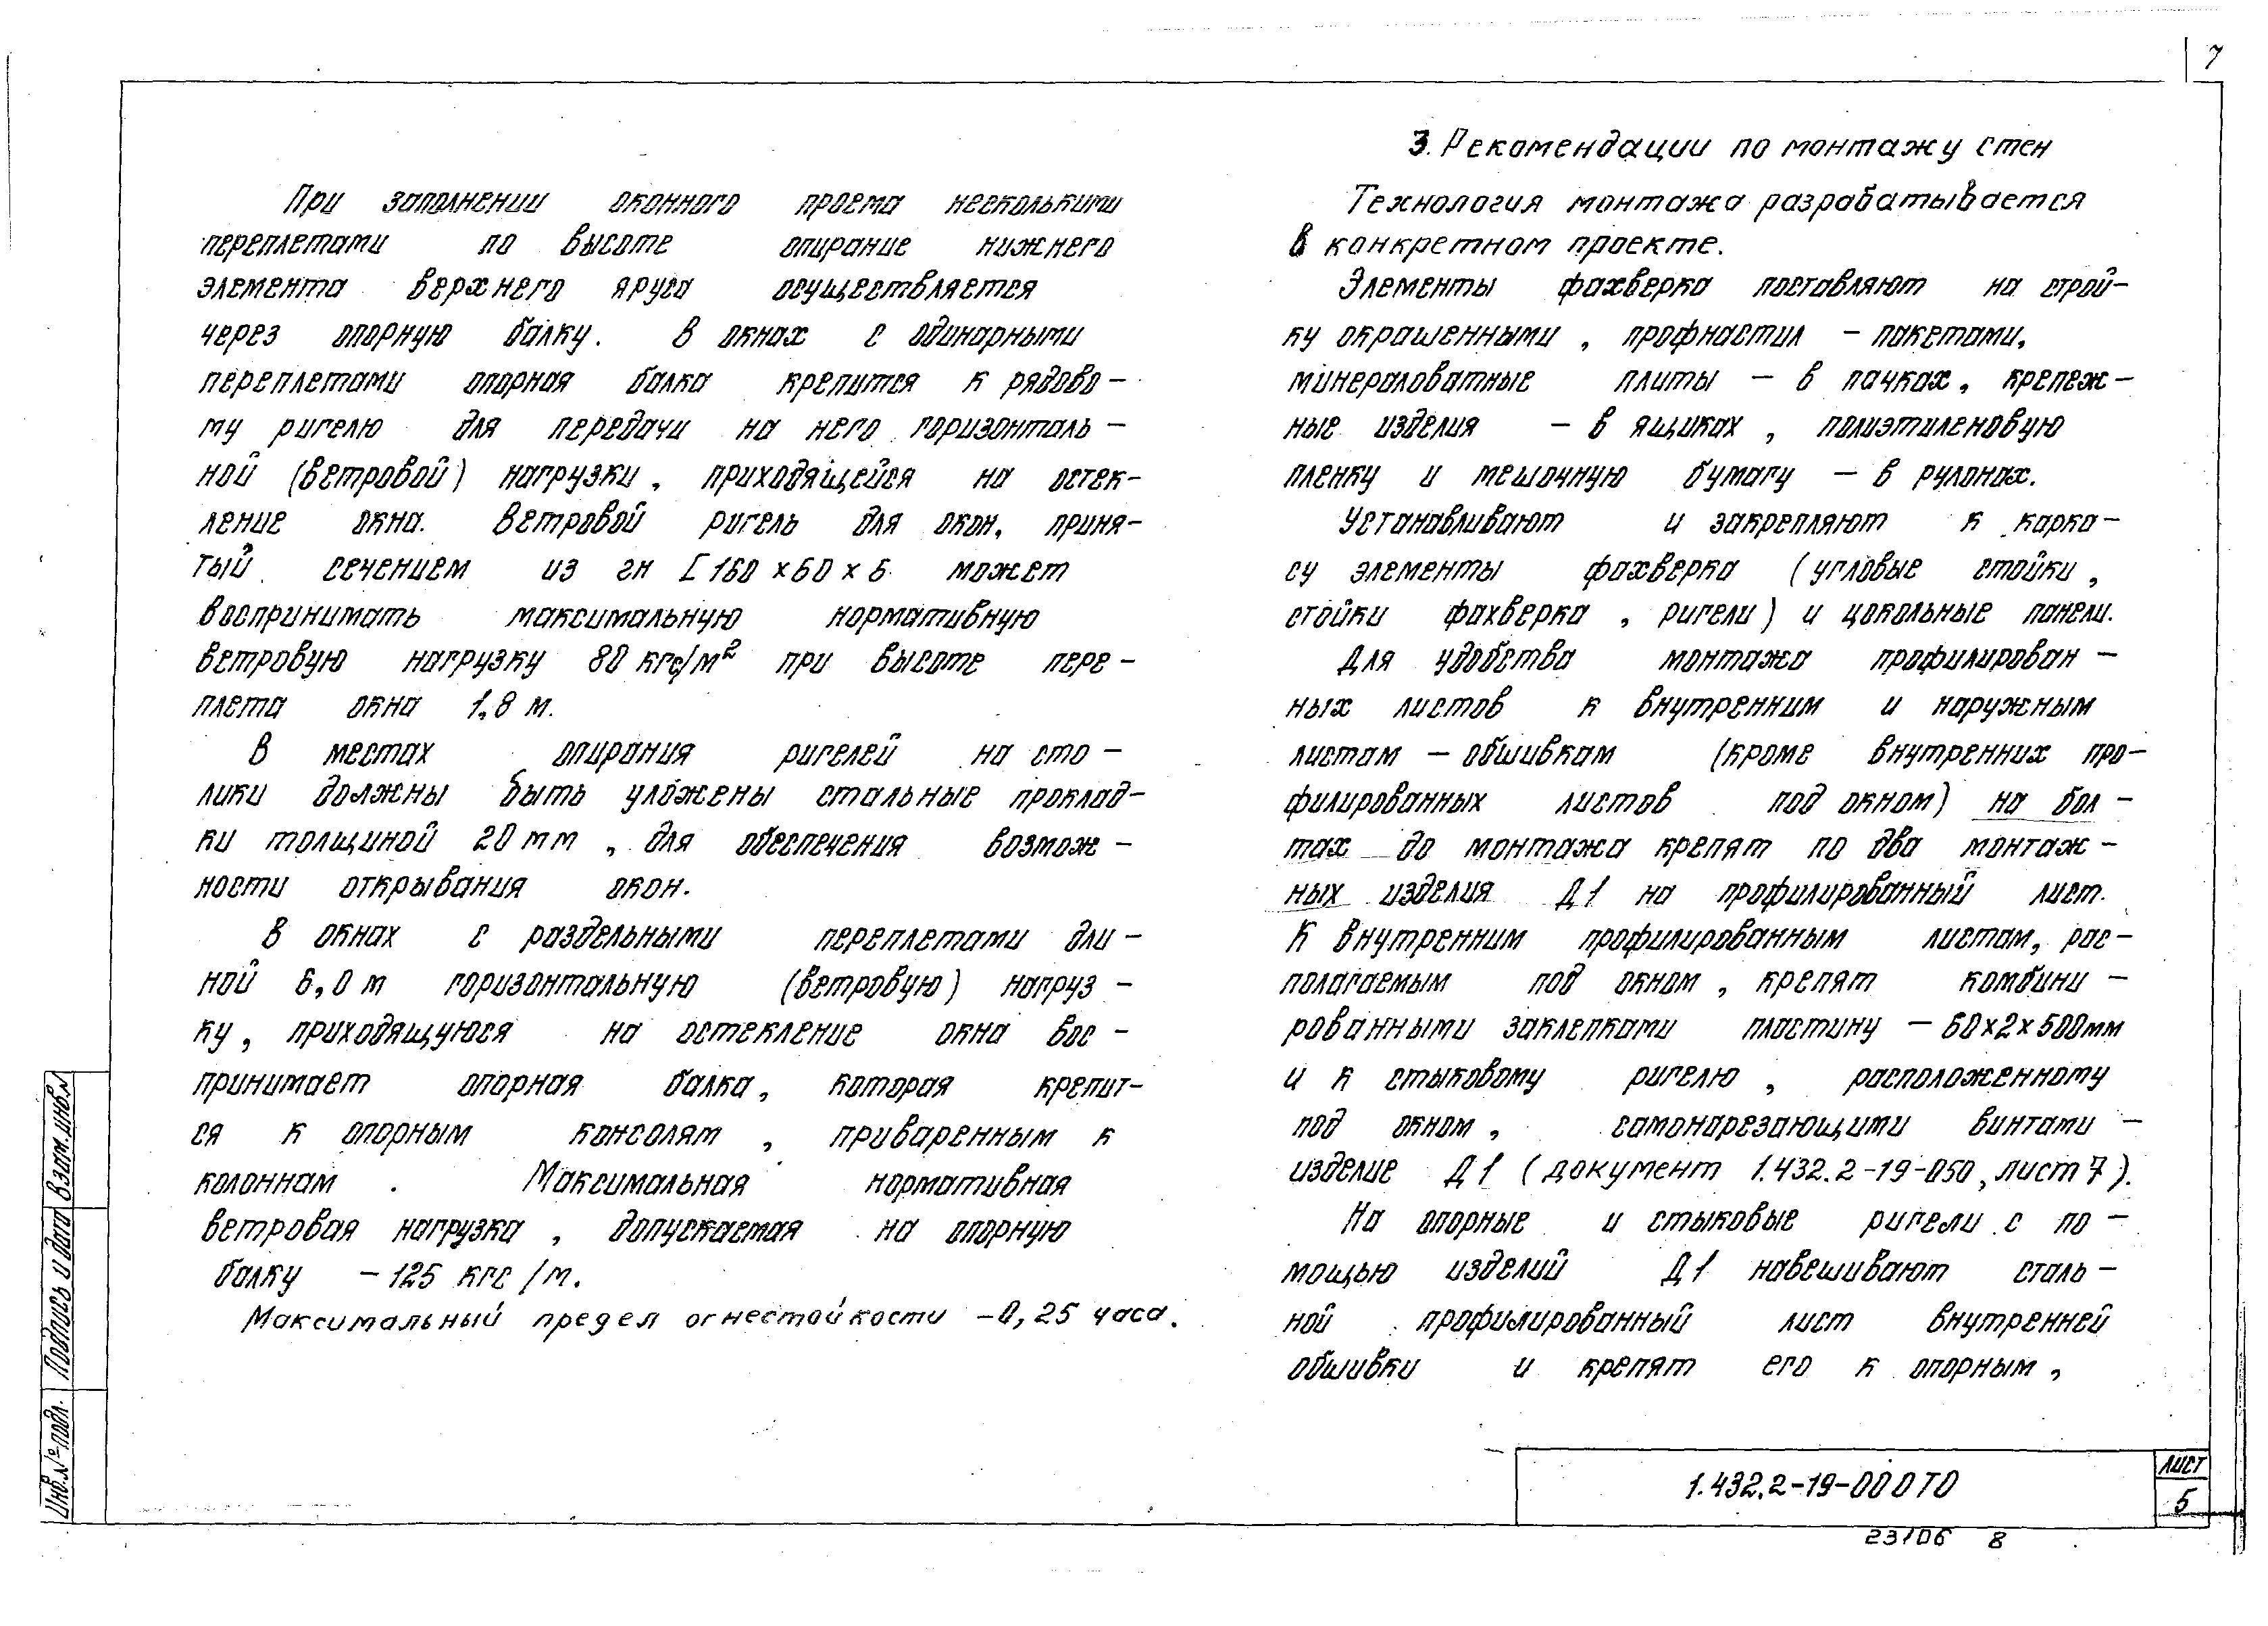 7
При заполнении оконного проема несколькими
переплетами по высоте опирание нижнего
элемента верхнего яруса осуществляется
через опорную балку. В окнах с одинарными
переплетами опорная балка крепится к рядово-
му ригелю для передачи на него горизонталь-
ной (ветровой) нагрузки, приходящейся на остек-
ление окна. Ветровой ригель для окон, приня-
тый сечением из гн [ 160 × 60 × 6 может
воспринимать максимальную нормативную
ветровую нагрузку 80 кгс/м² при высоте пере-
плета окна 1,8 м.
В местах опирания ригелей на сто-
лики должны быть уложены стальные проклад-
ки толщиной 20 мм, для обеспечения возмож-
ности открывания окон.
В окнах с раздельными переплетами дли-
ной 6,0 м горизонтальную (ветровую) нагруз-
ку, приходящуюся на остекление окна вос-
принимает опорная балка, которая крепит-
ся к опорным консолям, приваренным к
колоннам. Максимальная нормативная
ветровая нагрузка, допускаемая на опорную
балку - 125 кгс/м.
Максимальный предел огнестойкости - 0,25 часа.
3. Рекомендации по монтажу стен
Технология монтажа разрабатывается
в конкретном проекте.
Элементы фахверка поставляют на строй-
ку окрашенными, профнастил - пакетами,
минераловатные плиты - в пачках, крепеж-
ные изделия - в ящиках, полиэтиленовую
пленку и мешочную бумагу - в рулонах.
Устанавливают и закрепляют к карка-
су элементы фахверка (угловые стойки,
стойки фахверка, ригели) и цокольные панели.
Для удобства монтажа профилирован-
ных листов к внутренним и наружным
листам - обшивкам (кроме внутренних про-
филированных листов под окном) на бол-
тах до монтажа крепят по два монтаж-
ных изделия Д1 на профилированный лист.
К внутренним профилированным листам, рас-
полагаемым под окном, крепят комбини-
рованными заклепками пластину - 60×2×500мм
и к стыковому ригелю, расположенному
под окном, самонарезающими винтами -
изделие Д1 (документ 1.432.2-19-050, лист 7).
На опорные и стыковые ригели с по-
мощью изделий Д1 навешивают сталь-
ной профилированный лист внутренней
обшивки и крепят его к опорным,
Инв.№ подл. Подпись и дата Взам.инв.№
1.432.2-19-000ТО
Лист
5
23106 8